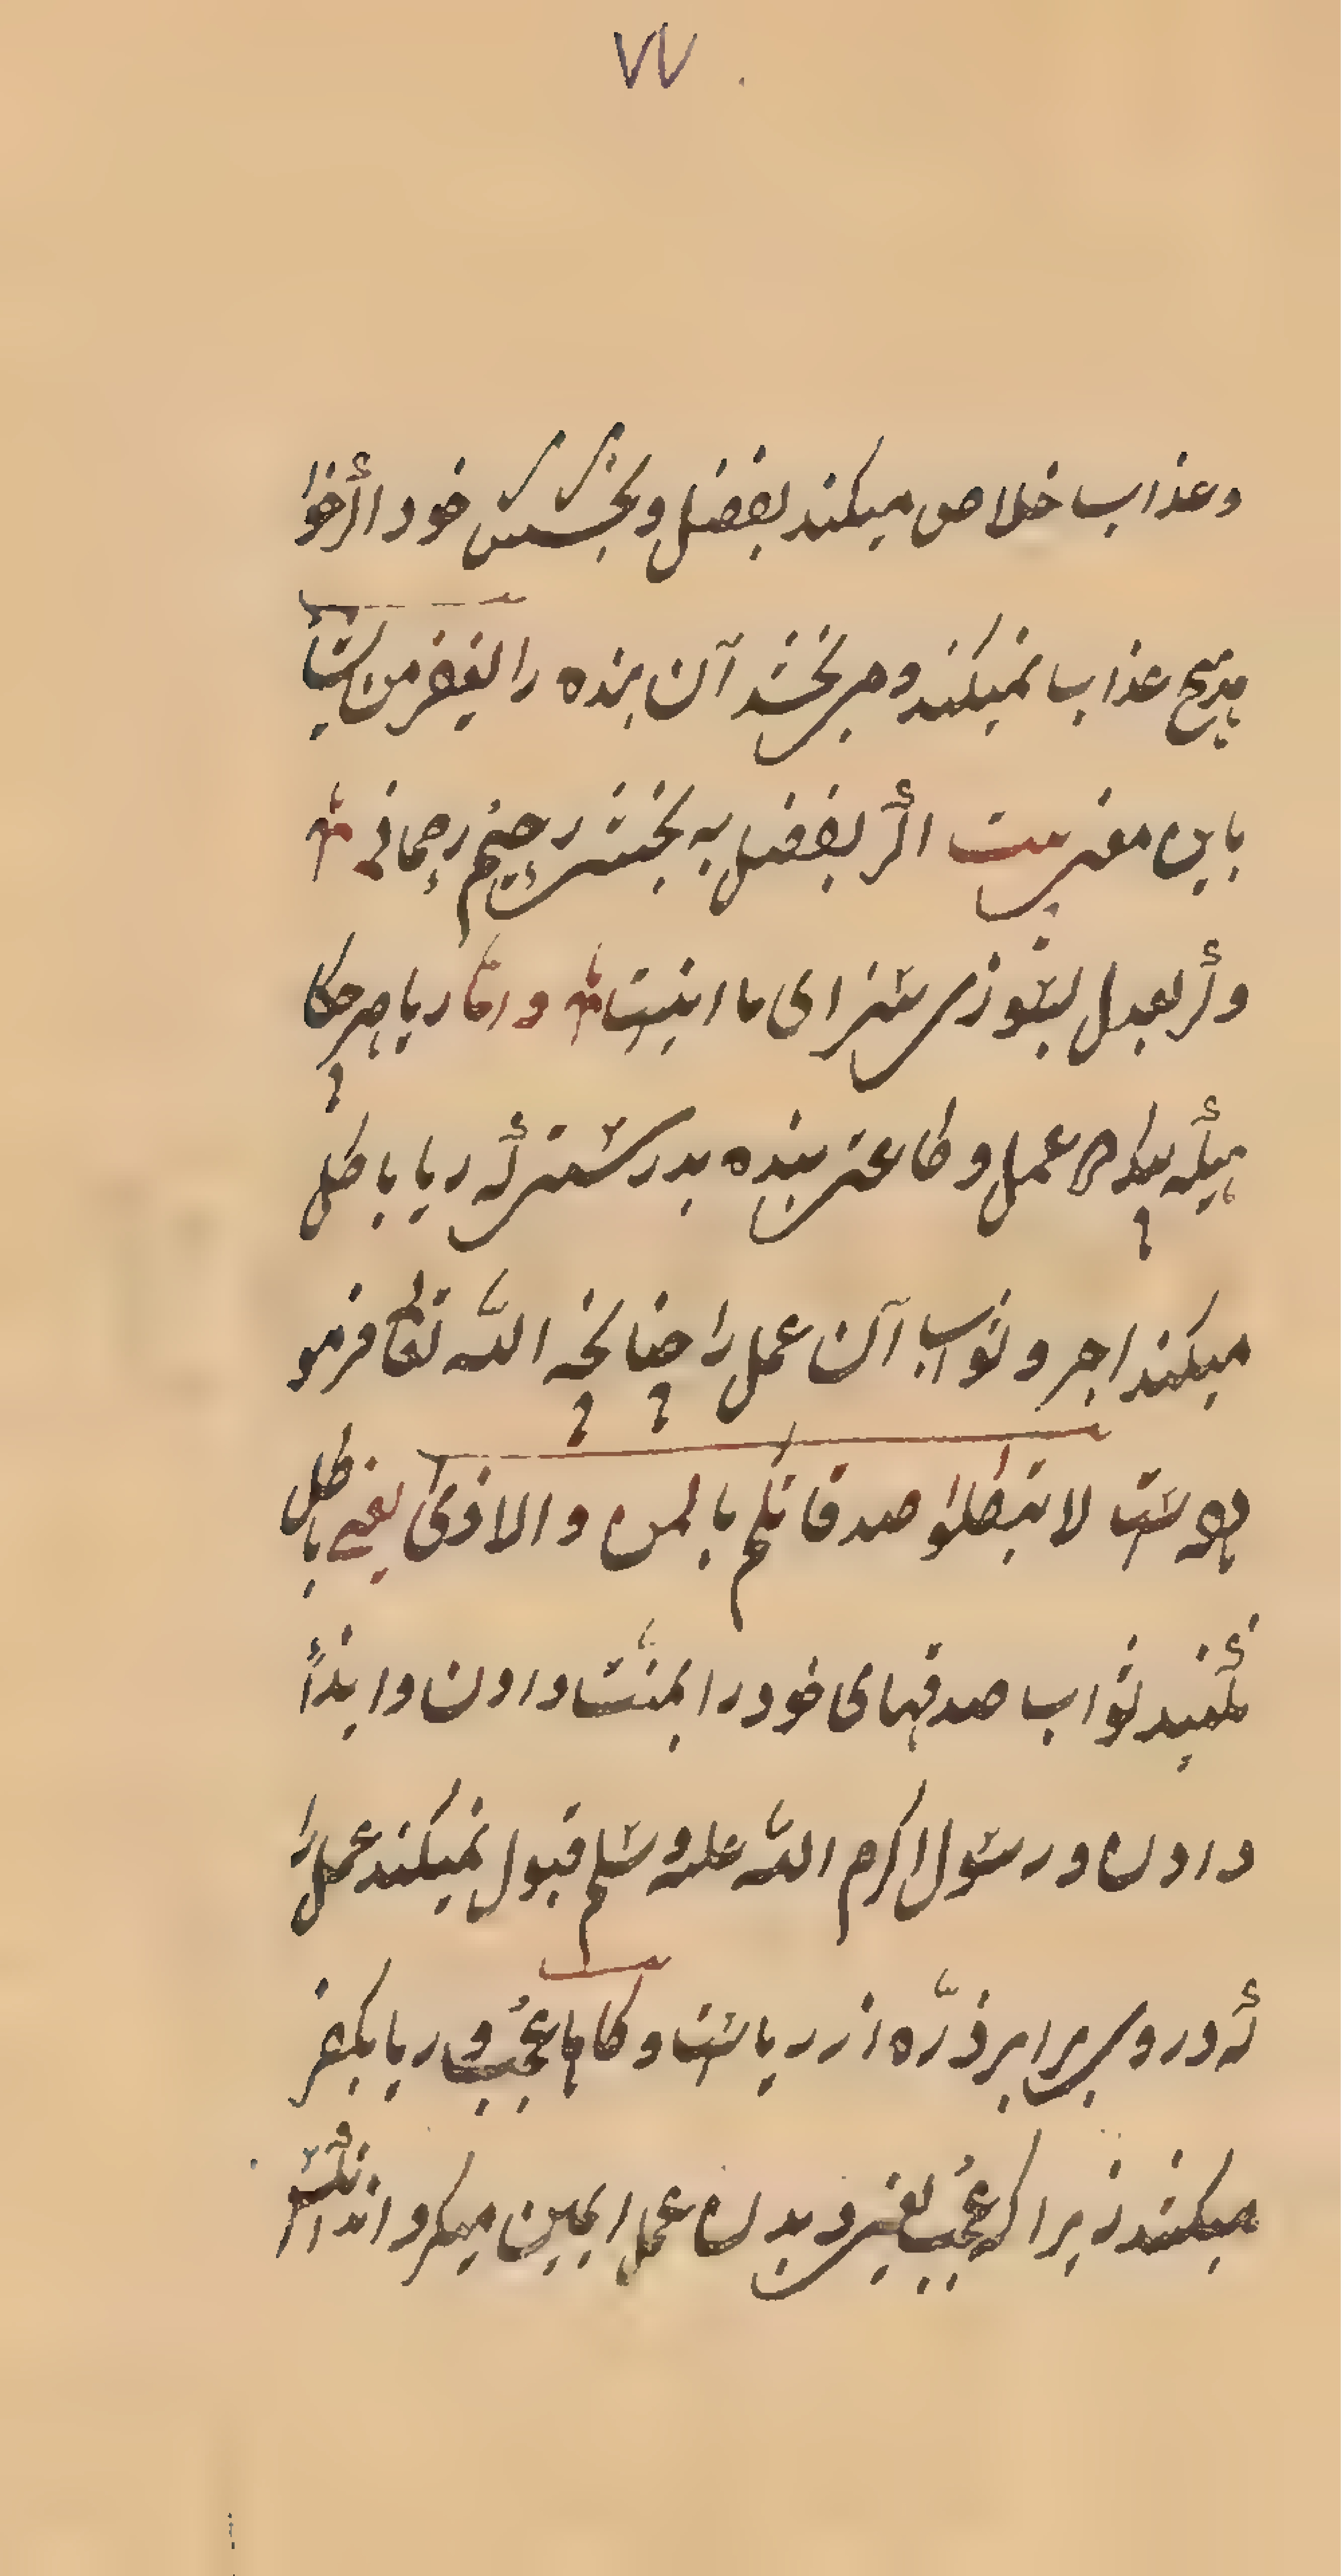 ۷۷
وعذاب خلاص میکند بفضل و بخشش خود اگر خوا
هد هیچ عذاب نمیکند و می بخشد آن بنده را یغفر من یشأ
باین معنی ست اگر بفضل به بخشی رحیم رحمانی
وگر بعدل بسوزی سزای ما اینست و امّا ریا هر چکا
هیکه یکه عمل و طاعتی بنده بدرستی که ریا باطل
میکند اجر و ثواب آن عمل را چنانچه اللّه تعالی فرمو
ده ست لا تبطلوا صدقاتکم بالمن والاذی یعنی باطل
مکنید ثواب صدقهای خود را بمنّت دادن و ایذأ
دادن و رسول اکرم اللّه علیه وسلم قبول نمیکند عمل را
که در وی برابر ذرّه از ریاست و کاهاعجب و ریا بکفر
میکشد زیرا که عجب یعنی و بدان عمل ایمن میکرداند